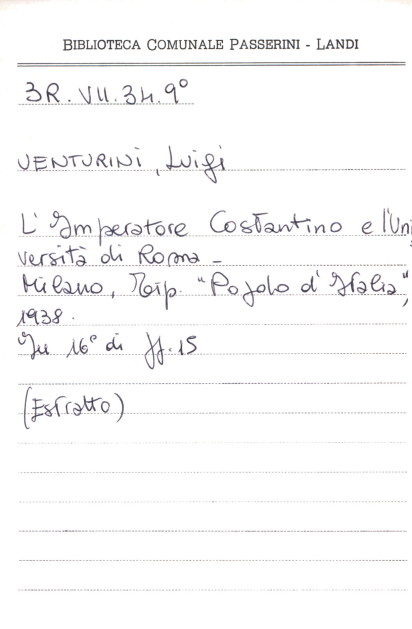 BIBLIOTECA COMUNALE PASSERINI - LANDI
3R. VII. 34. 9°
VENTURINI, Luigi
L'Imperatore Costantino e l'Uni
versità di Roma -
Milano, Tip. "Popolo d'Italia",
1938.
In 16° di pp. 15
(Estratto)